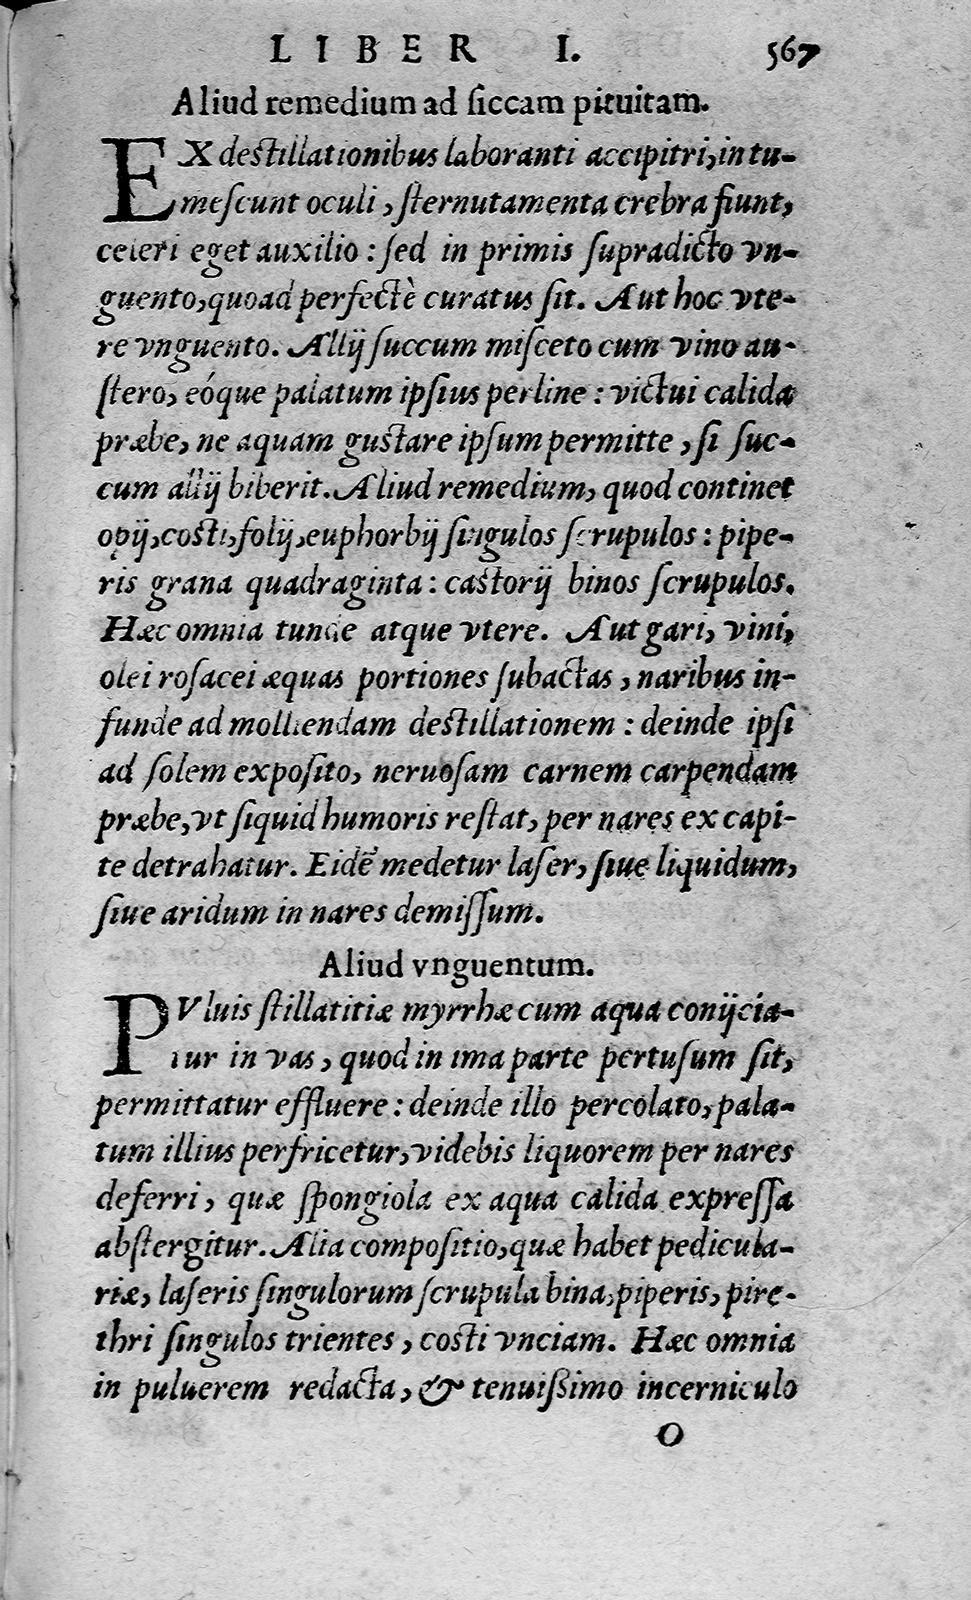 LIBER I. 567
Aliud remedium ad siccam pituitam.
EX destillationibus laboranti accipitri, intu-
mescunt oculi, sternutamenta crebra fiunt,
celeri eget auxilio: sed in primis supradicto vn-
guento, quoad perfectè curatus sit. Aut hoc vte-
re vnguento. Allij succum misceto cum vino au-
stero, eóque palatum ipsius perline: victui calida
præbe, ne aquam gustare ipsum permitte, si suc-
cum allij biberit. Aliud remedium, quod continet
opij, costi, folij, euphorbij singulos scrupulos: pipe-
ris grana quadraginta: castorij binos scrupulos.
Hæc omnia tunde atque vtere. Aut gari, vini,
olei rosacei æquas portiones subactas, naribus in-
funde ad molliendam destillationem: deinde ipsi
ad solem exposito, neruosam carnem carpendam
præbe, vt siquid humoris restat, per nares ex capi-
te detrahatur. Eidē medetur laser, siue liquidum,
siue aridum in nares demissum.
Aliud vnguentum.
PVluis stillatitiæ myrrhæ cum aqua conijcia-
tur in vas, quod in ima parte pertusum sit,
permittatur effluere: deinde illo percolato, pala-
tum illius perfricetur, videbis liquorem per nares
deferri, quæ spongiola ex aqua calida expressa
abstergitur. Alia compositio, quæ habet pedicula-
riæ, laseris singulorum scrupula bina, piperis, pire-
thri singulos trientes, costi vnciam. Hæc omnia
in puluerem redacta, & tenuißimo incerniculo
O